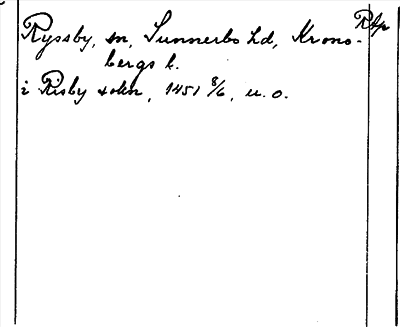 Ryssby, sn, Sunnerbo hd, Krono-
bergs l.
i Risby sokn, 1451 8/6, u. o.
Rfp